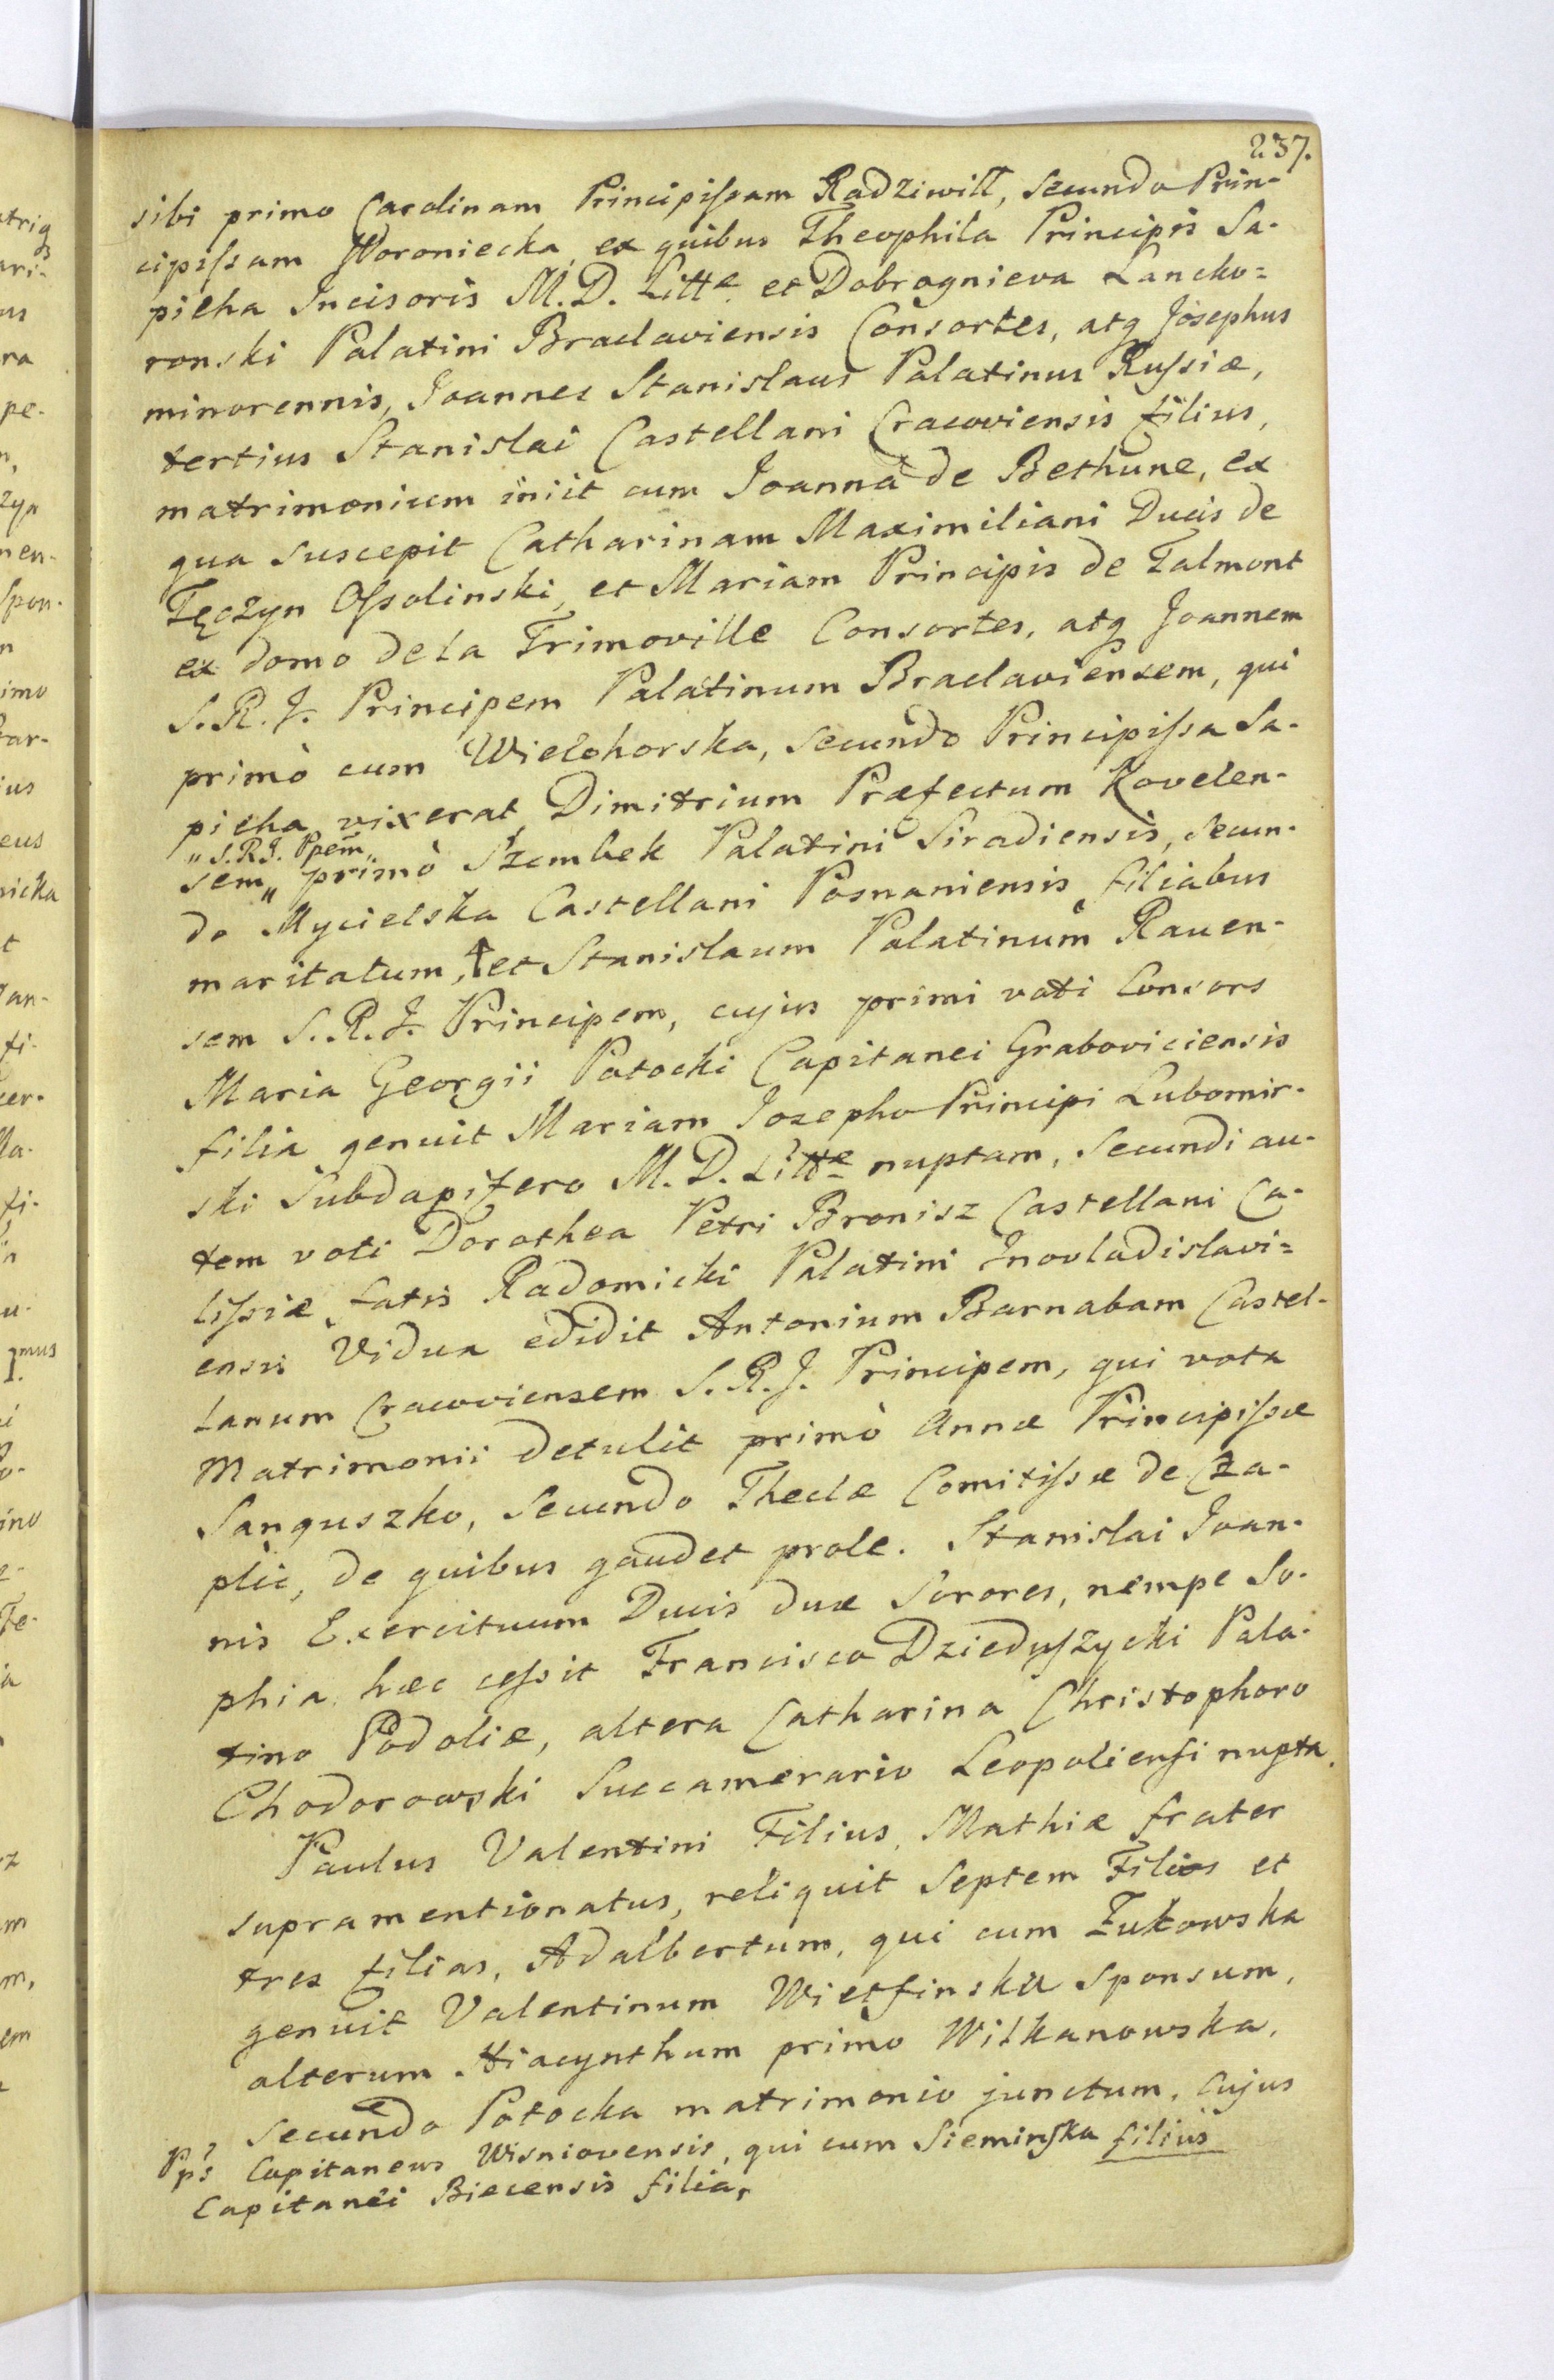 237.
sibi primo Carolinam Principiſsam Radziwiłł, secundo Prin-
cipiſsam Woroniecka, ex quibus Theophila Principis Sa-
pieha Incisoris M.D. Littæ et Dobrognieva Lancko=
ronski Palatini Braclaviensis Consortes, atq Josephus
minorennis, Joannes Stanislaus Palatinus Ruſsiæ,
tertius Stanislai Castellani Cracoviensis filius,
matrimonium iniit cum Joanna de Bethune, ex
qua suscepit Catharinam Maximiliani Ducis de
Tęczyn Oſsolinski, et Mariam Principis de Talmont
ex domo de la Trimoville Consortes, atq Joannem
S.R.J. Principem Palatinum Braclaviensem, qui
primò cum Wielohorska, secundo Principiſsa Sa-
pieha vixerat, Dimitrium Præfectum Kovelen-
„S.R.J. Ppem„
sem„ primò Szembek Palatini Siradiensis, secun-
do Mycielska Castellani Posnaniensis filiabus
maritatum, † et Stanislaum Palatinum Raven-
sem S.R.J. Principem, cujus primi voti Consors
Maria Georgii Potocki Capitanei Graboviciensis
filia genuit Mariam Josepho Principi Lubomir-
ski Subdapifero M.D. Littæ nuptam, secundi au-
tem voti Dorothea Petri Bronisz Castellani Ca-
liſsiæ, fatis Radomicki Palatini Inovladislavi=
ensis Vidua edidit Antonium Barnabam Castel-
lanum Cracoviensem S.R.J. Principem, qui vota
Matrimonii detulit primò Annæ Principiſsæ
Sanguszko, secundo Theclæ Comitiſsæ de Cza-
plic, de quibus gaudet prole. Stanislai Joan-
nis Exercituum Ducis duæ Sorores, nempe So-
phia, hæc ceſsit Francisco Dzieduſzycki Pala-
tino Podoliæ, altera Catharina Christophoro
Chodorowski Succamerario Leopolienſi nupta.
Paulus Valentini Filius, Mathiæ frater
supramentionatus, reliquit Septem Filios et
tres filias, Adalbertum, qui cum Żukowska
genuit Valentinum Wietſinska Sponsum,
alterum Hiacynthum primo Witkanowska,
secundo Potocka matrimonio junctum, Cujus
filius
† Pps Capitaneus Wisniovensis, qui cum Sieminſka
Capitanei Biecensis filia,